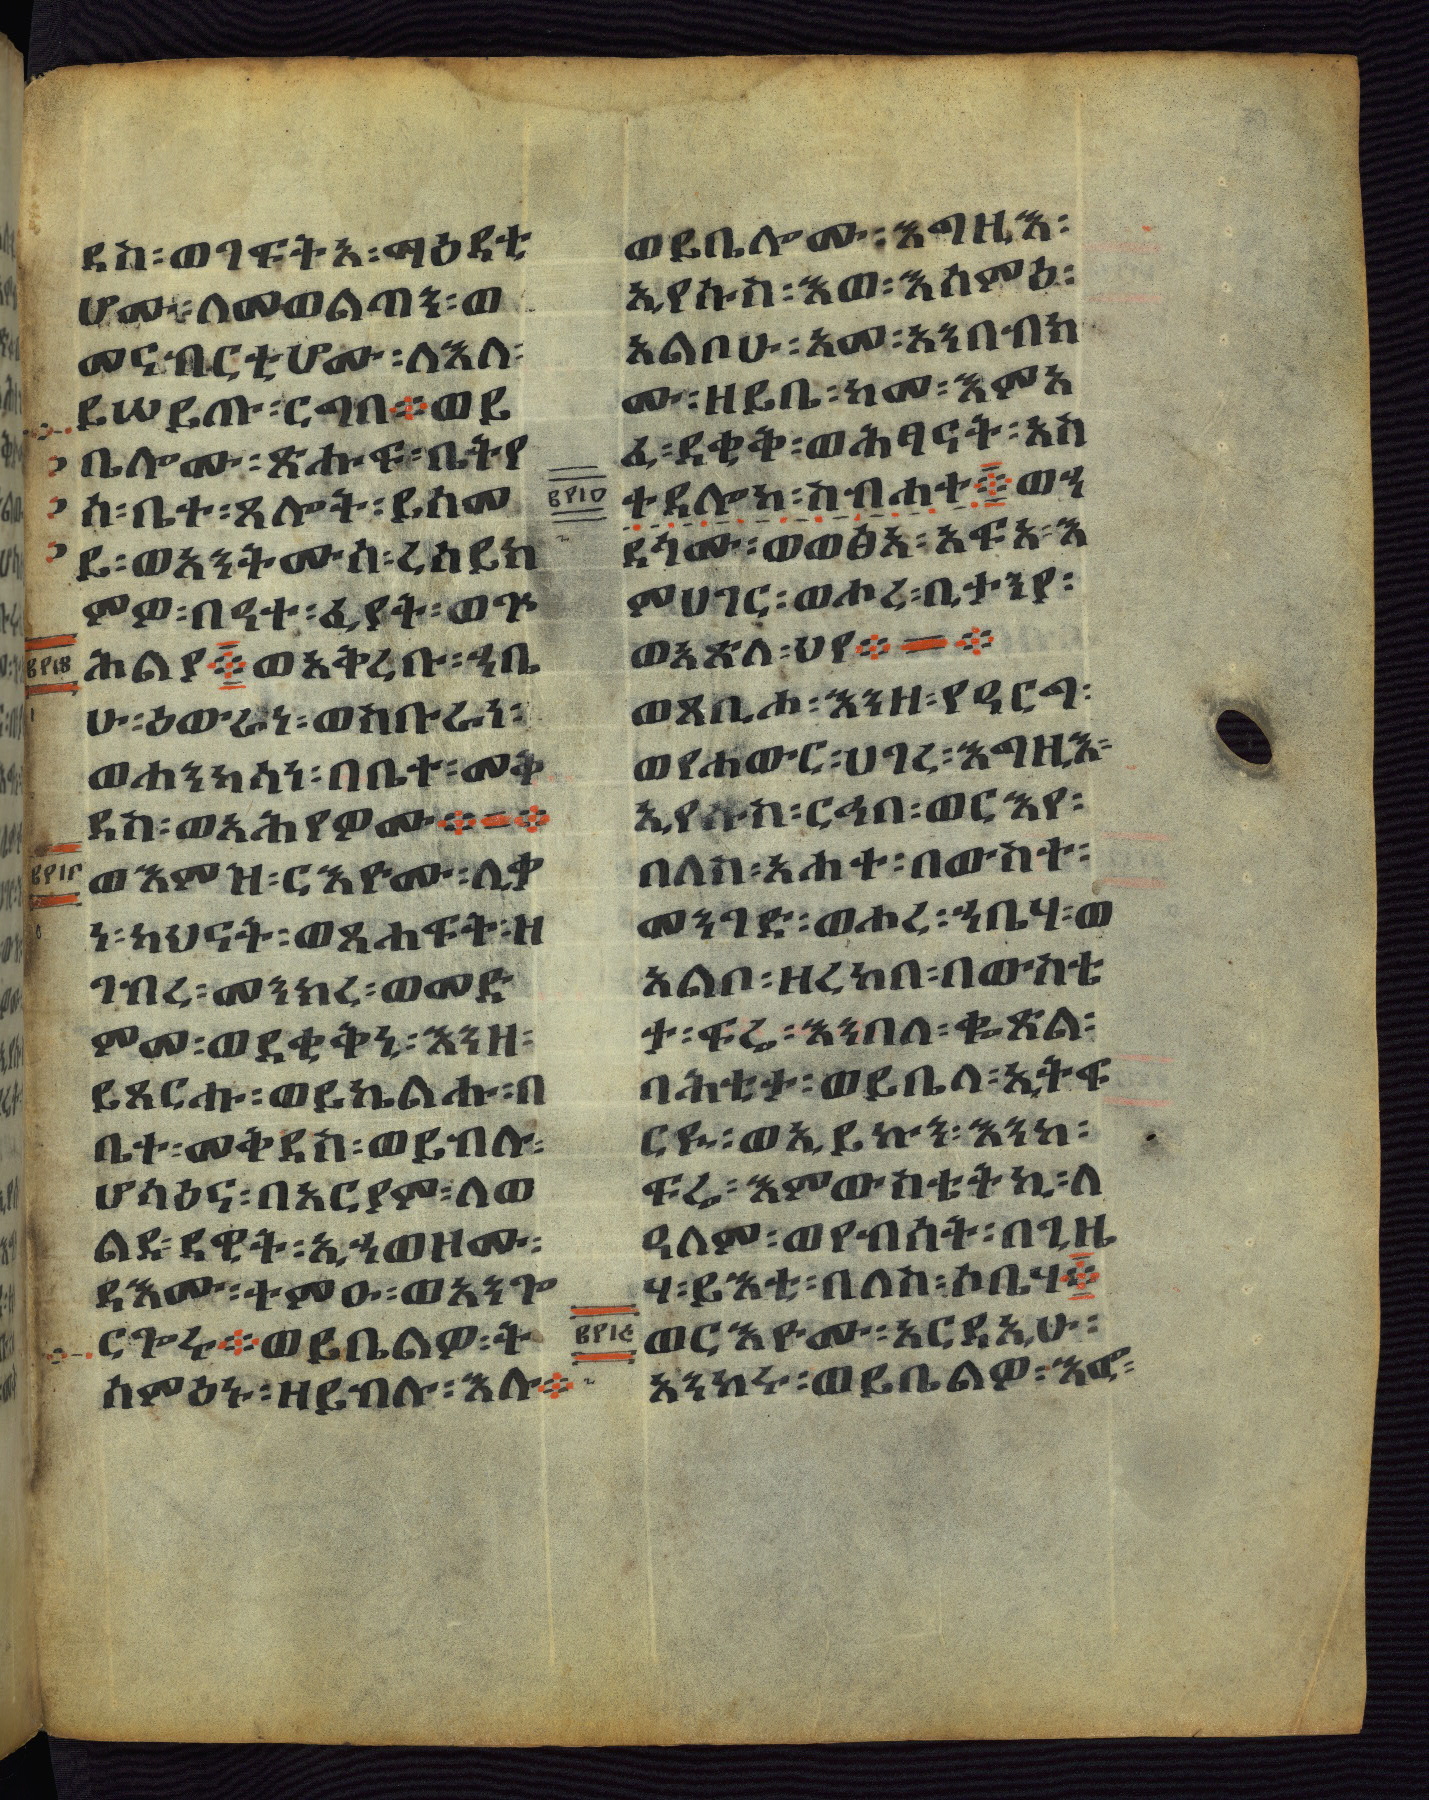 ዳስ፡ወገፍትአ፡ማዕዳቲ
ሆሙ፡ለመወልጣን፡ወ
መናብርቲሆሙ፡ለእለ፡
ይሠይጡ፡ርግበ፨ወይ
ቤሎሙ፡ጽሑፍ፡ቤትየ
ሰ፡ቤተ፡ጸሎት፡ይሰመ
ይ፡ወአንትሙሰ፡ረሰይክ
ምዎ፡በዓተ፡ፈያት፡ወጕ
ሕልያ፨ወአቅረቡ፡ኀቤ
ሁ፡ዕውራነ፡ወስቡራነ፡
ወሐንካሳነ፡በቤተ፡መቅ
ደስ፡ወአሕየዎሙ፨፨
ወእምዝ፡ርእዮሙ፡ሊቃ
ነ፡ካህናት፡ወጸሐፍት፡ዘ
ገብረ፡መንክረ፡ወመድ
ምመ፡ወደቂቅኒ፡እንዘ፡
ይጸርሑ፡ወይኬልሑ፡በ
ቤተ፡መቅደስ፡ወይብሉ፡
ሆሳዕና፡በአርያም፡ለወ
ልደ፡ዳዊት፡ኢኀወዘሙ፡
ዳእሙ፡ተምዑ፡ወአንጐ
ርጐሩ፨ወይቤልዎ፡ት
ሰምዕኑ፡ዘይብሉ፡እሉ፨
ወይቤሎሙ፡እግዚእ፡
ኢየሱስ፡እወ፡እሰምዕ፡
አልቦሁ፡አመ፡አንበብክ
ሙ፡ዘይቤ፡ከመ፡እምአ
ፈ፡ደቂቅ፡ወሕፃናት፡አስ
ተዳሎከ፡ስብሐተ፨ወኀ
ደጎሙ፡ወወፅአ፡አፍአ፡እ
ምሀገር፡ወሖረ፡ቢታንያ፡
ወአጽለ፡ህየ፨፨
ወጸቢሖ፡እንዘ፡የዓርግ፡
ወየሐውር፡ሀገረ፡እግዚእ፡
ኢየሱስ፡ርኅበ፡ወርእየ፡
በለሰ፡አሐተ፡በውስተ፡
መንገድ፡ወሖረ፡ኀቤሃ፡ወ
አልቦ፡ዘረከበ፡በውስቴ
ታ፡ፍሬ፡እንበለ፡ቈጽል፡
ባሕቲታ፡ወይቤላ፡ኢትፍ
ርዪ፡ወኢይኩን፡እንከ፡
ፍሬ፡እምውስቴትኪ፡ለ
ዓለም፡ወየብሰት፡በጊዜ
ሃ፡ይእቲ፡በለስ፡ሶቤሃ፨
ወርእዮሙ፡አርዳኢሁ፡
አንከሩ፡ወይቤልዎ፡እፎ፡